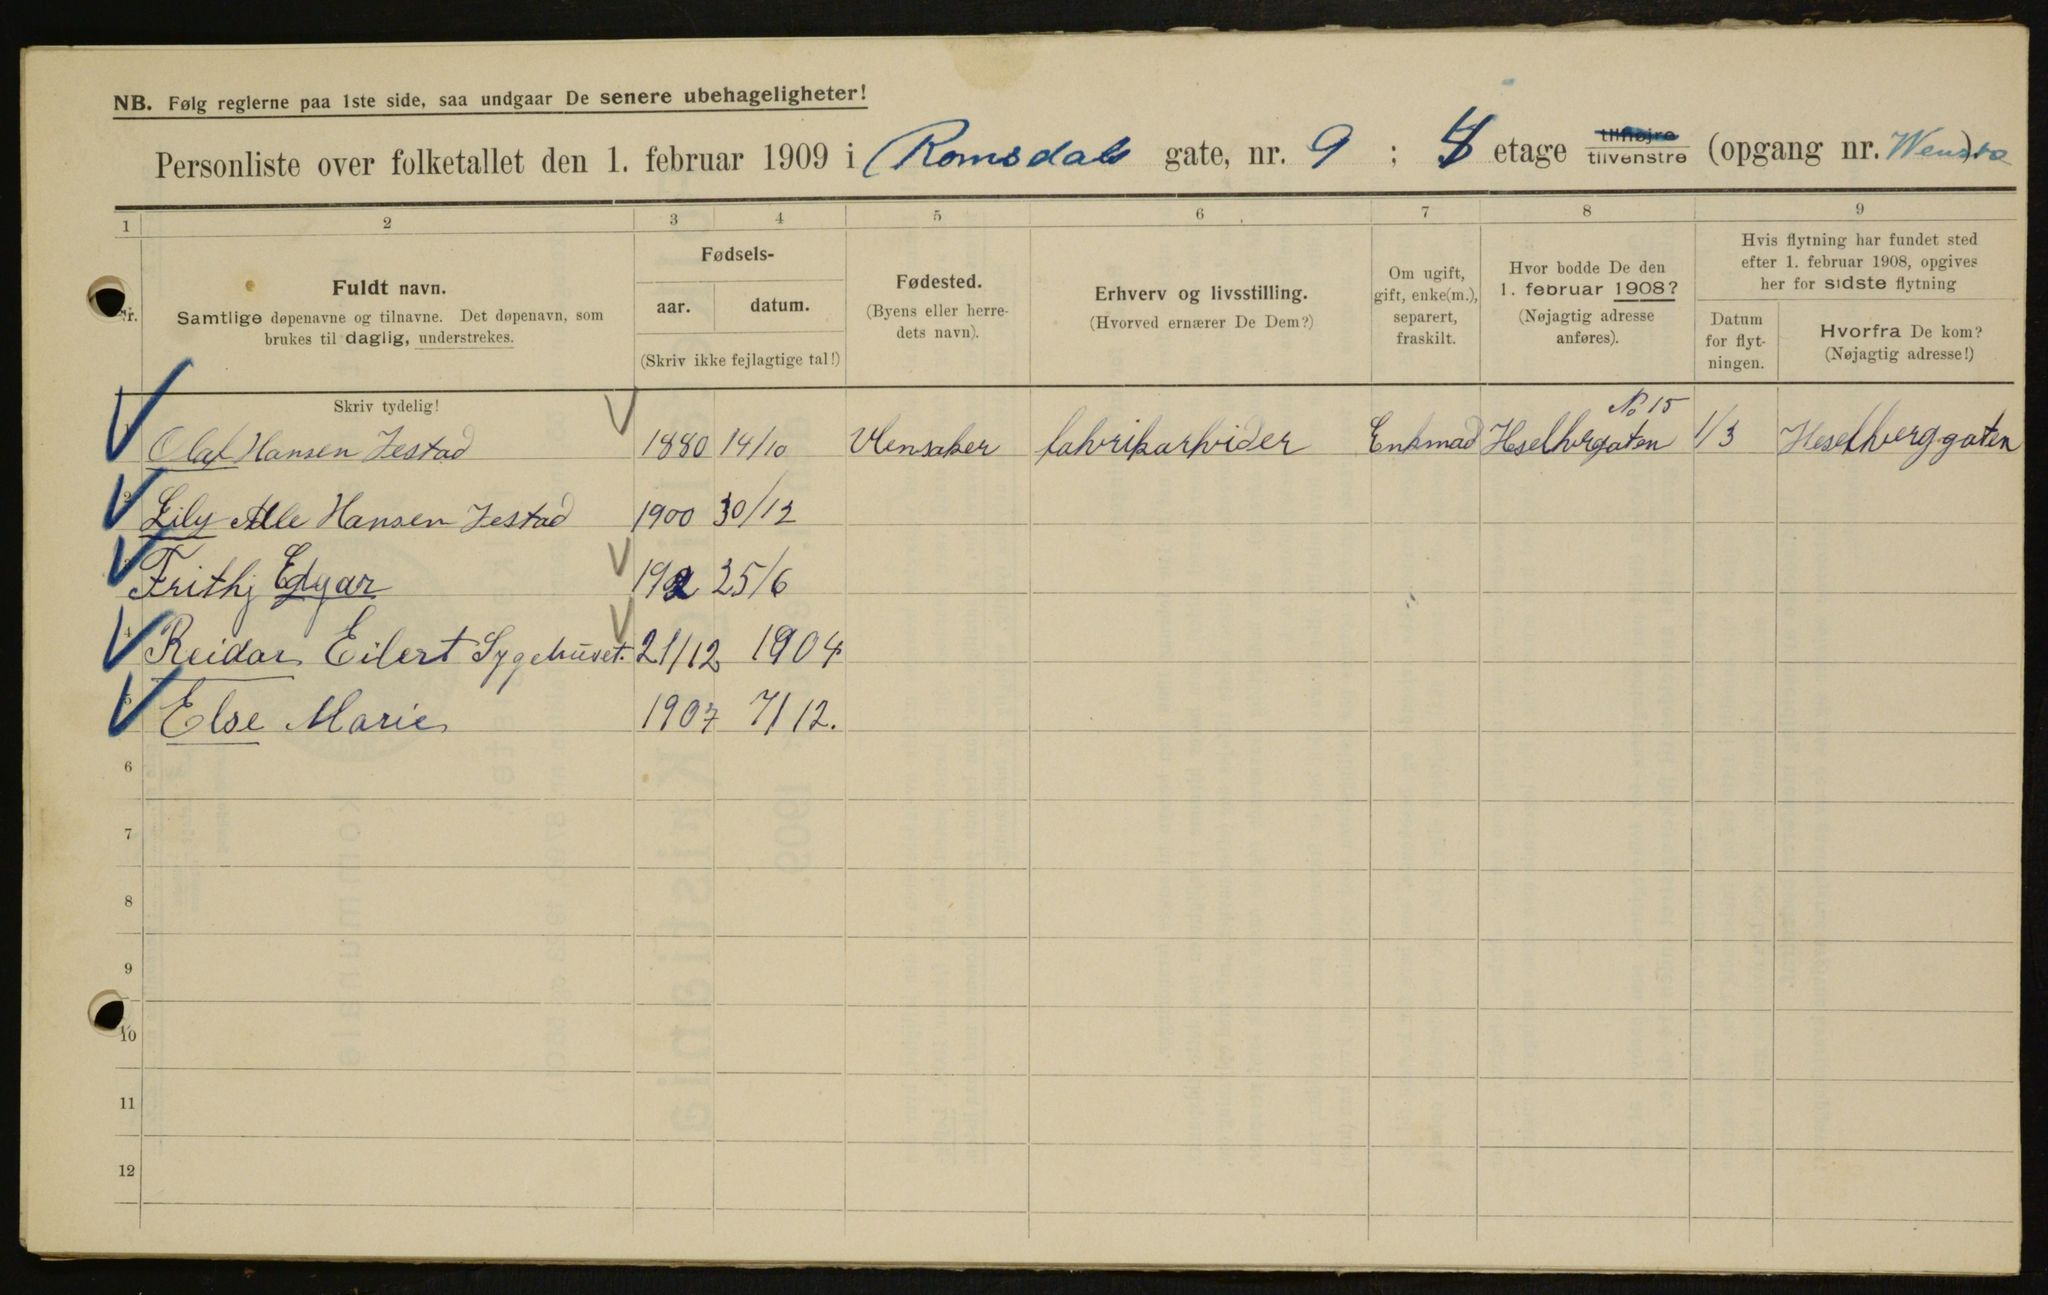 NB. Følg reglerne paa 1ste side, saa undgaar De senere ubehageligheter!
Personliste over folketallet den 1. februar 1909 i Romsdals gate, nr. 9 ; 4 etage tilhøjre tilvenstre (opgang nr. )
1 2 3 4 5 6 7 8 9
Nr. Fuldt navn. Samtlige døpenavne og tilnavne. Det døpenavn, som brukes til daglig, understrekes.
Fødsels- aar. datum. (Skriv ikke fejlagtige tal!)
Fødested. (Byens eller herredets navn).
Erhverv og livsstilling. (Hvorved ernærer De Dem?)
Om ugift, gift, enke(m.), separert, fraskilt.
Hvor bodde De den 1. februar 1908? (Nøjagtig adresse anføres).
Hvis flytning har fundet sted efter 1. februar 1908, opgives her for sidste flytning
Datum for flytningen.
Hvorfra De kom? (Nøjagtig adresse!)
Skriv tydelig!
No 15
1 Olaf Hansen Jestad 1880 14/10 fabrikarbider Enkmad Heselbrgaten 1/3 Heselberggaten
2 Lily Hansen Jestad 1900 30/12
3 Frithj Edgar 1902 25/6
4 Reidar Eilert Sygehuset. 21/12 1904
5 Else Marie 1907 7/12.
6
7
8
9
10
11
12